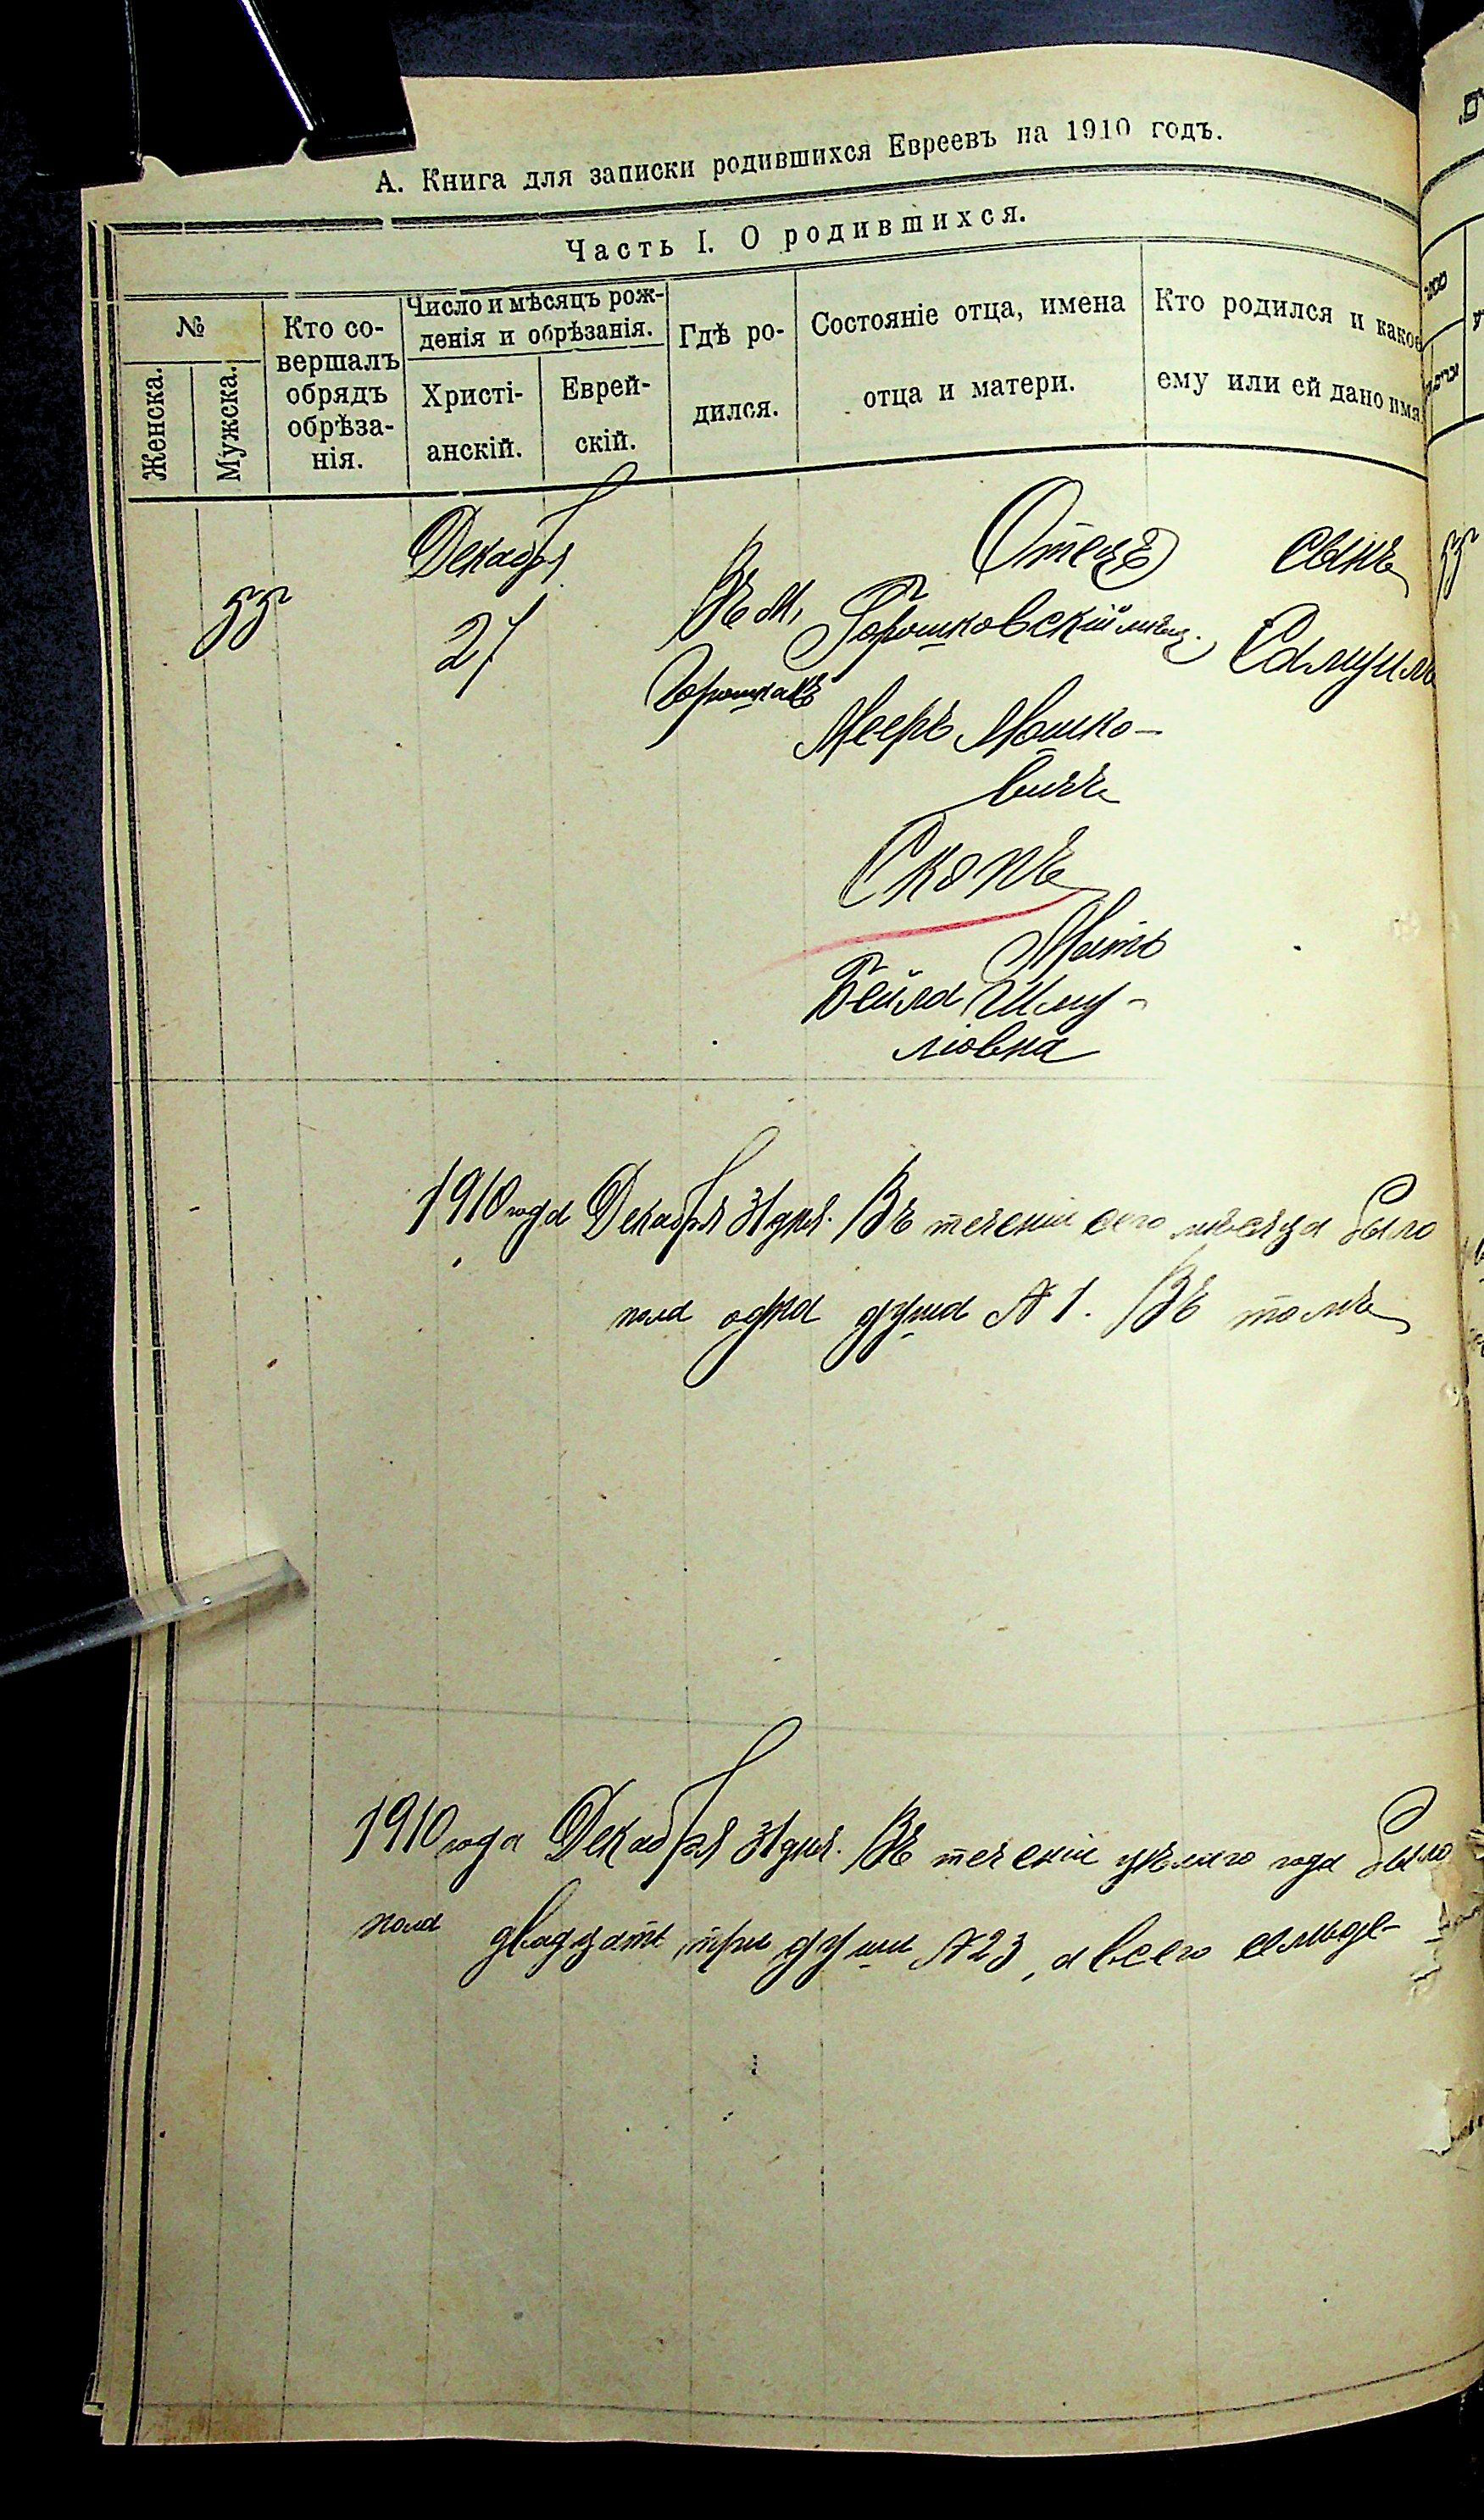 А. Книга для записки родившихся Евреевъ на 1910 годъ.
Часть I. О родившихся.
№
Женска.
Мужска.
Кто со-
вершалъ
обрядъ
обрѣза-
нія.
Число и мѣсяцъ рож-
денія и обрѣзанія.
Христі-
анскій.
Еврей-
скій.
Гдѣ ро-
дился.
Состояніе отца, имена
отца и матери.
Кто родился и какое
ему или ей дано имя
55
Декабря
27
Въ м.
Горошкахъ
Отецъ
Горошковскій мѣщ.
Мееръ Мошко-
вичъ
Скопъ
Мать
Бейла Шму-
лiовна
сынъ
Самуилъ
55
1910 года Декабря 31 дня. Въ теченіи сего мѣсяца было
пола одна душа № 1. Въ томъ
1910 года Декабря 31 дня. Въ теченіи цѣлаго года было
пола двадцать три души № 23, а всего семьде-